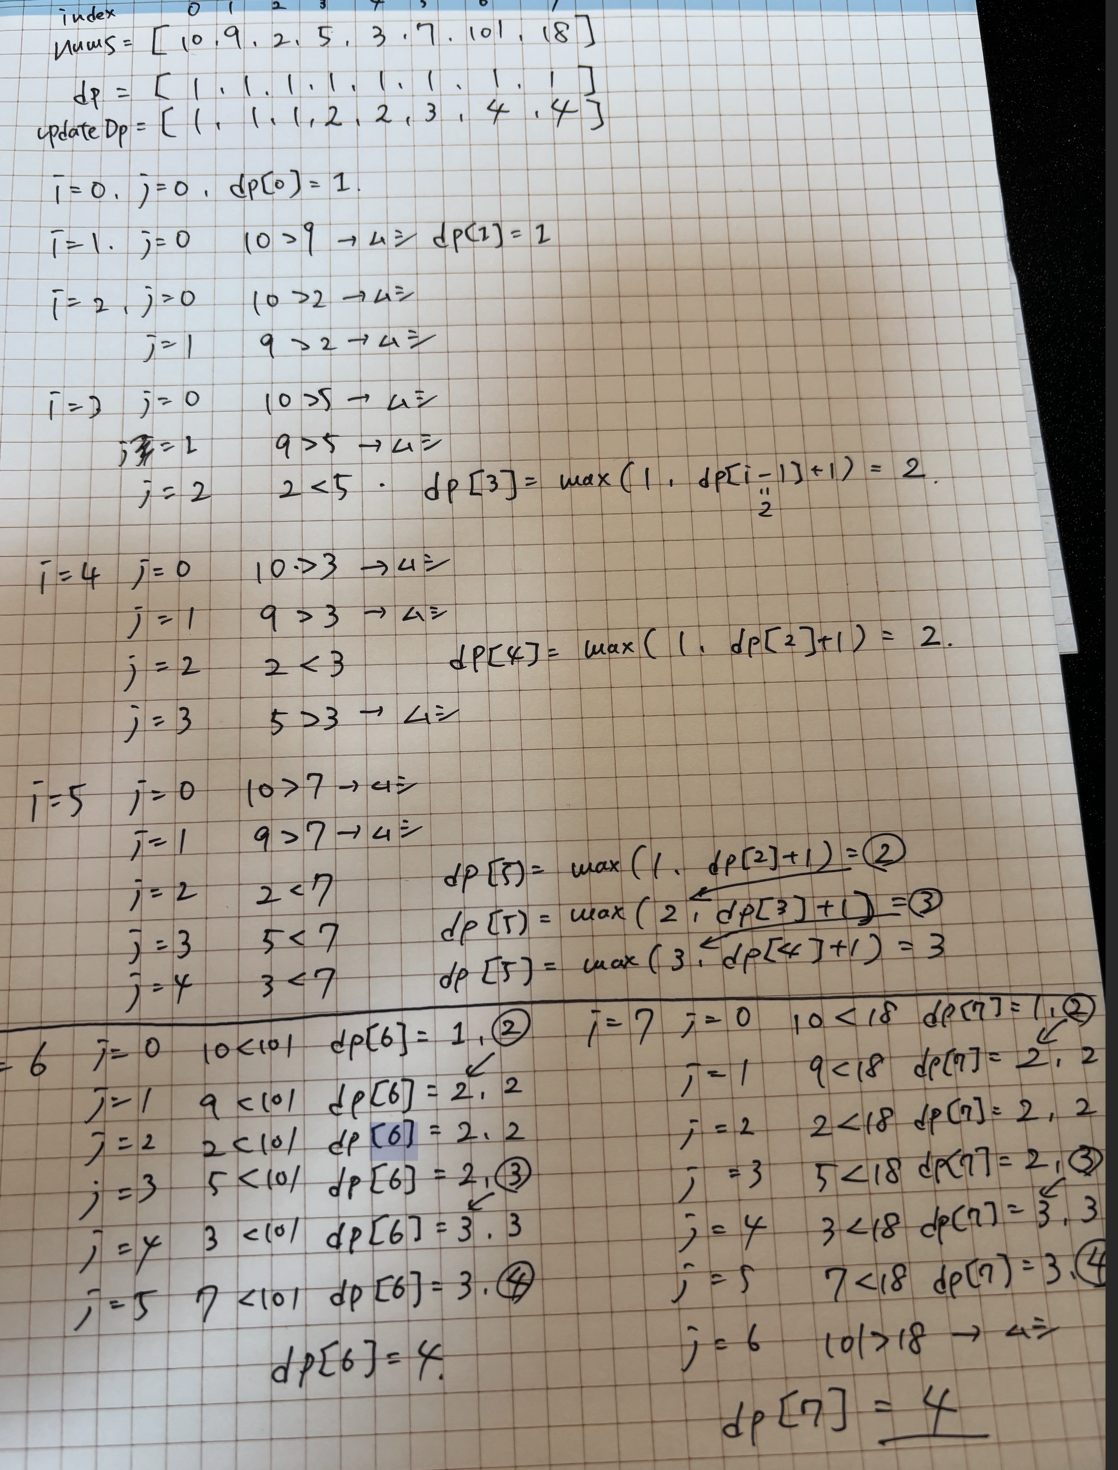 index 0 1 2 3 4 5 6 7
nums = [ 10, 9, 2, 5, 3, 7, 101, 18 ]
dp = [ 1, 1, 1, 1, 1, 1, 1, 1 ]
updateDp = [ 1, 1, 1, 2, 2, 3, 4, 4 ]
i=0, j=0, dp[0] = 1.
i=1. j=0 10>9 → dp[1] = 1
i=2, j=0 10>2 →
j=1 9>2 →
i=3 j=0 10>5 →
j=1 9>5 →
j=2 2<5 . dp[3] = max(1, dp[i-1]+1) = 2.
=
2
i=4 j=0 10>3 →
j=1 9>3 →
j=2 2<3 dp[4] = max(1, dp[2]+1) = 2.
j=3 5>3 →
i=5 j=0 10>7 →
j=1 9>7 →
j=2 2<7 dp[5] = max(1, dp[2]+1) = 2
j=3 5<7 dp[5] = max(2, dp[3]+1) = 3
j=4 3<7 dp[5] = max(3, dp[4]+1) = 3
= 6 j=0 10<101 dp[6] = 1, 2
j=1 9<101 dp[6] = 2, 2
j=2 2<101 dp[6] = 2, 2
j=3 5<101 dp[6] = 2, 3
j=4 3<101 dp[6] = 3, 3
j=5 7<101 dp[6] = 3, 4
dp[6] = 4.
i=7 j=0 10<18 dp[7] = 1, 2
j=1 9<18 dp[7] = 2, 2
j=2 2<18 dp[7] = 2, 2
j=3 5<18 dp[7] = 2, 3
j=4 3<18 dp[7] = 3, 3
j=5 7<18 dp[7] = 3, 4
j=6 101>18 →
dp[7] = 4